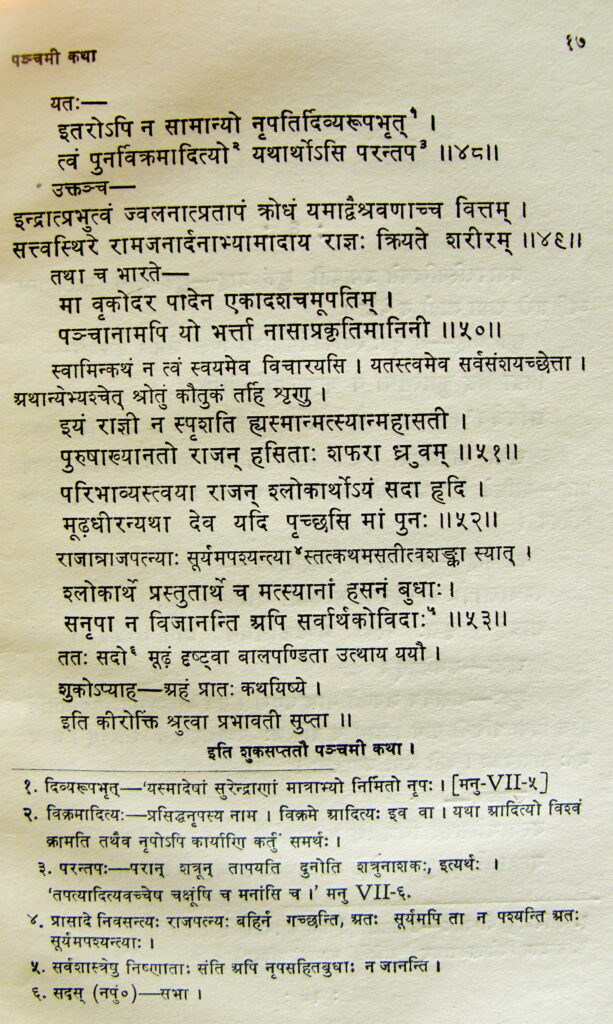 पञ्चमी कथा
१७
यतः—
इतरोऽपि न सामान्यो नृपतिर्दिव्यरूपभृत्१ ।
त्वं पुनर्विक्रमादित्यो२ यथार्थोऽसि परन्तप३ ॥४८॥
उक्तञ्च—
इन्द्रात्प्रभुत्वं ज्वलनात्प्रतापं क्रोधं यमाद्वैश्रवणाच्च वित्तम् ।
सत्त्वस्थिरे रामजनार्दनाभ्यामादाय राज्ञः क्रियते शरीरम् ॥४९॥
तथा च भारते—
मा वृकोदर पादेन एकादशचमूपतिम् ।
पञ्चानामपि यो भर्त्ता नासाप्रकृतिमानिनी ॥५०॥
स्वामिन्कथं न त्वं स्वयमेव विचारयसि । यतस्त्वमेव सर्वसंशयच्छेत्ता ।
अथान्येभ्यश्चेत् श्रोतुं कौतुकं तर्हि शृणु ।
इयं राज्ञी न स्पृशति ह्यस्मान्मत्स्यान्महासती ।
पुरुषाख्यानतो राजन् हसिताः शफरा ध्रुवम् ॥५१॥
परिभाव्यस्त्वया राजन् श्लोकार्थोऽयं सदा हृदि ।
मूढधीरन्यथा देव यदि पृच्छसि मां पुनः ॥५२॥
राजान्राजपत्न्याः सूर्यमपश्यन्त्या४स्तत्कथमसतीत्वशङ्का स्यात् ।
श्लोकार्थे प्रस्तुतार्थे च मत्स्यानां हसनं बुधाः ।
सनृपा न विजानन्ति अपि सर्वार्थकोविदाः५ ॥५३॥
ततः सदो६ मूढं दृष्ट्वा बालपण्डिता उत्थाय ययौ ।
शुकोऽप्याह—अहं प्रातः कथयिष्ये ।
इति कीरोक्तिं श्रुत्वा प्रभावती सुप्ता ॥
इति शुकसप्ततौ पञ्चमी कथा ।
१. दिव्यरूपभृत्—‘यस्मादेषां सुरेन्द्राणां मात्राभ्यो निर्मितो नृपः । [मनु-VII-५]
२. विक्रमादित्यः—प्रसिद्धनृपस्य नाम । विक्रमे आदित्यः इव वा । यथा आदित्यो विश्वं
क्रामति तथैव नृपोऽपि कार्याणि कर्तुं समर्थः ।
३. परन्तपः—परान् शत्रून् तापयति दुनोति शत्रुनाशकः, इत्यर्थः ।
‘तपत्यादित्यवच्चेष चक्षूंषि च मनांसि च ।’ मनु VII-६.
४. प्रासादे निवसन्त्यः राजपत्न्यः बहिर्न गच्छन्ति, अतः सूर्यमपि ता न पश्यन्ति अतः
सूर्यमपश्यन्त्याः ।
५. सर्वशास्त्रेषु निष्णाताः संति अपि नृपसहितबुधाः न जानन्ति ।
६. सदस् (नपुं०)—सभा ।